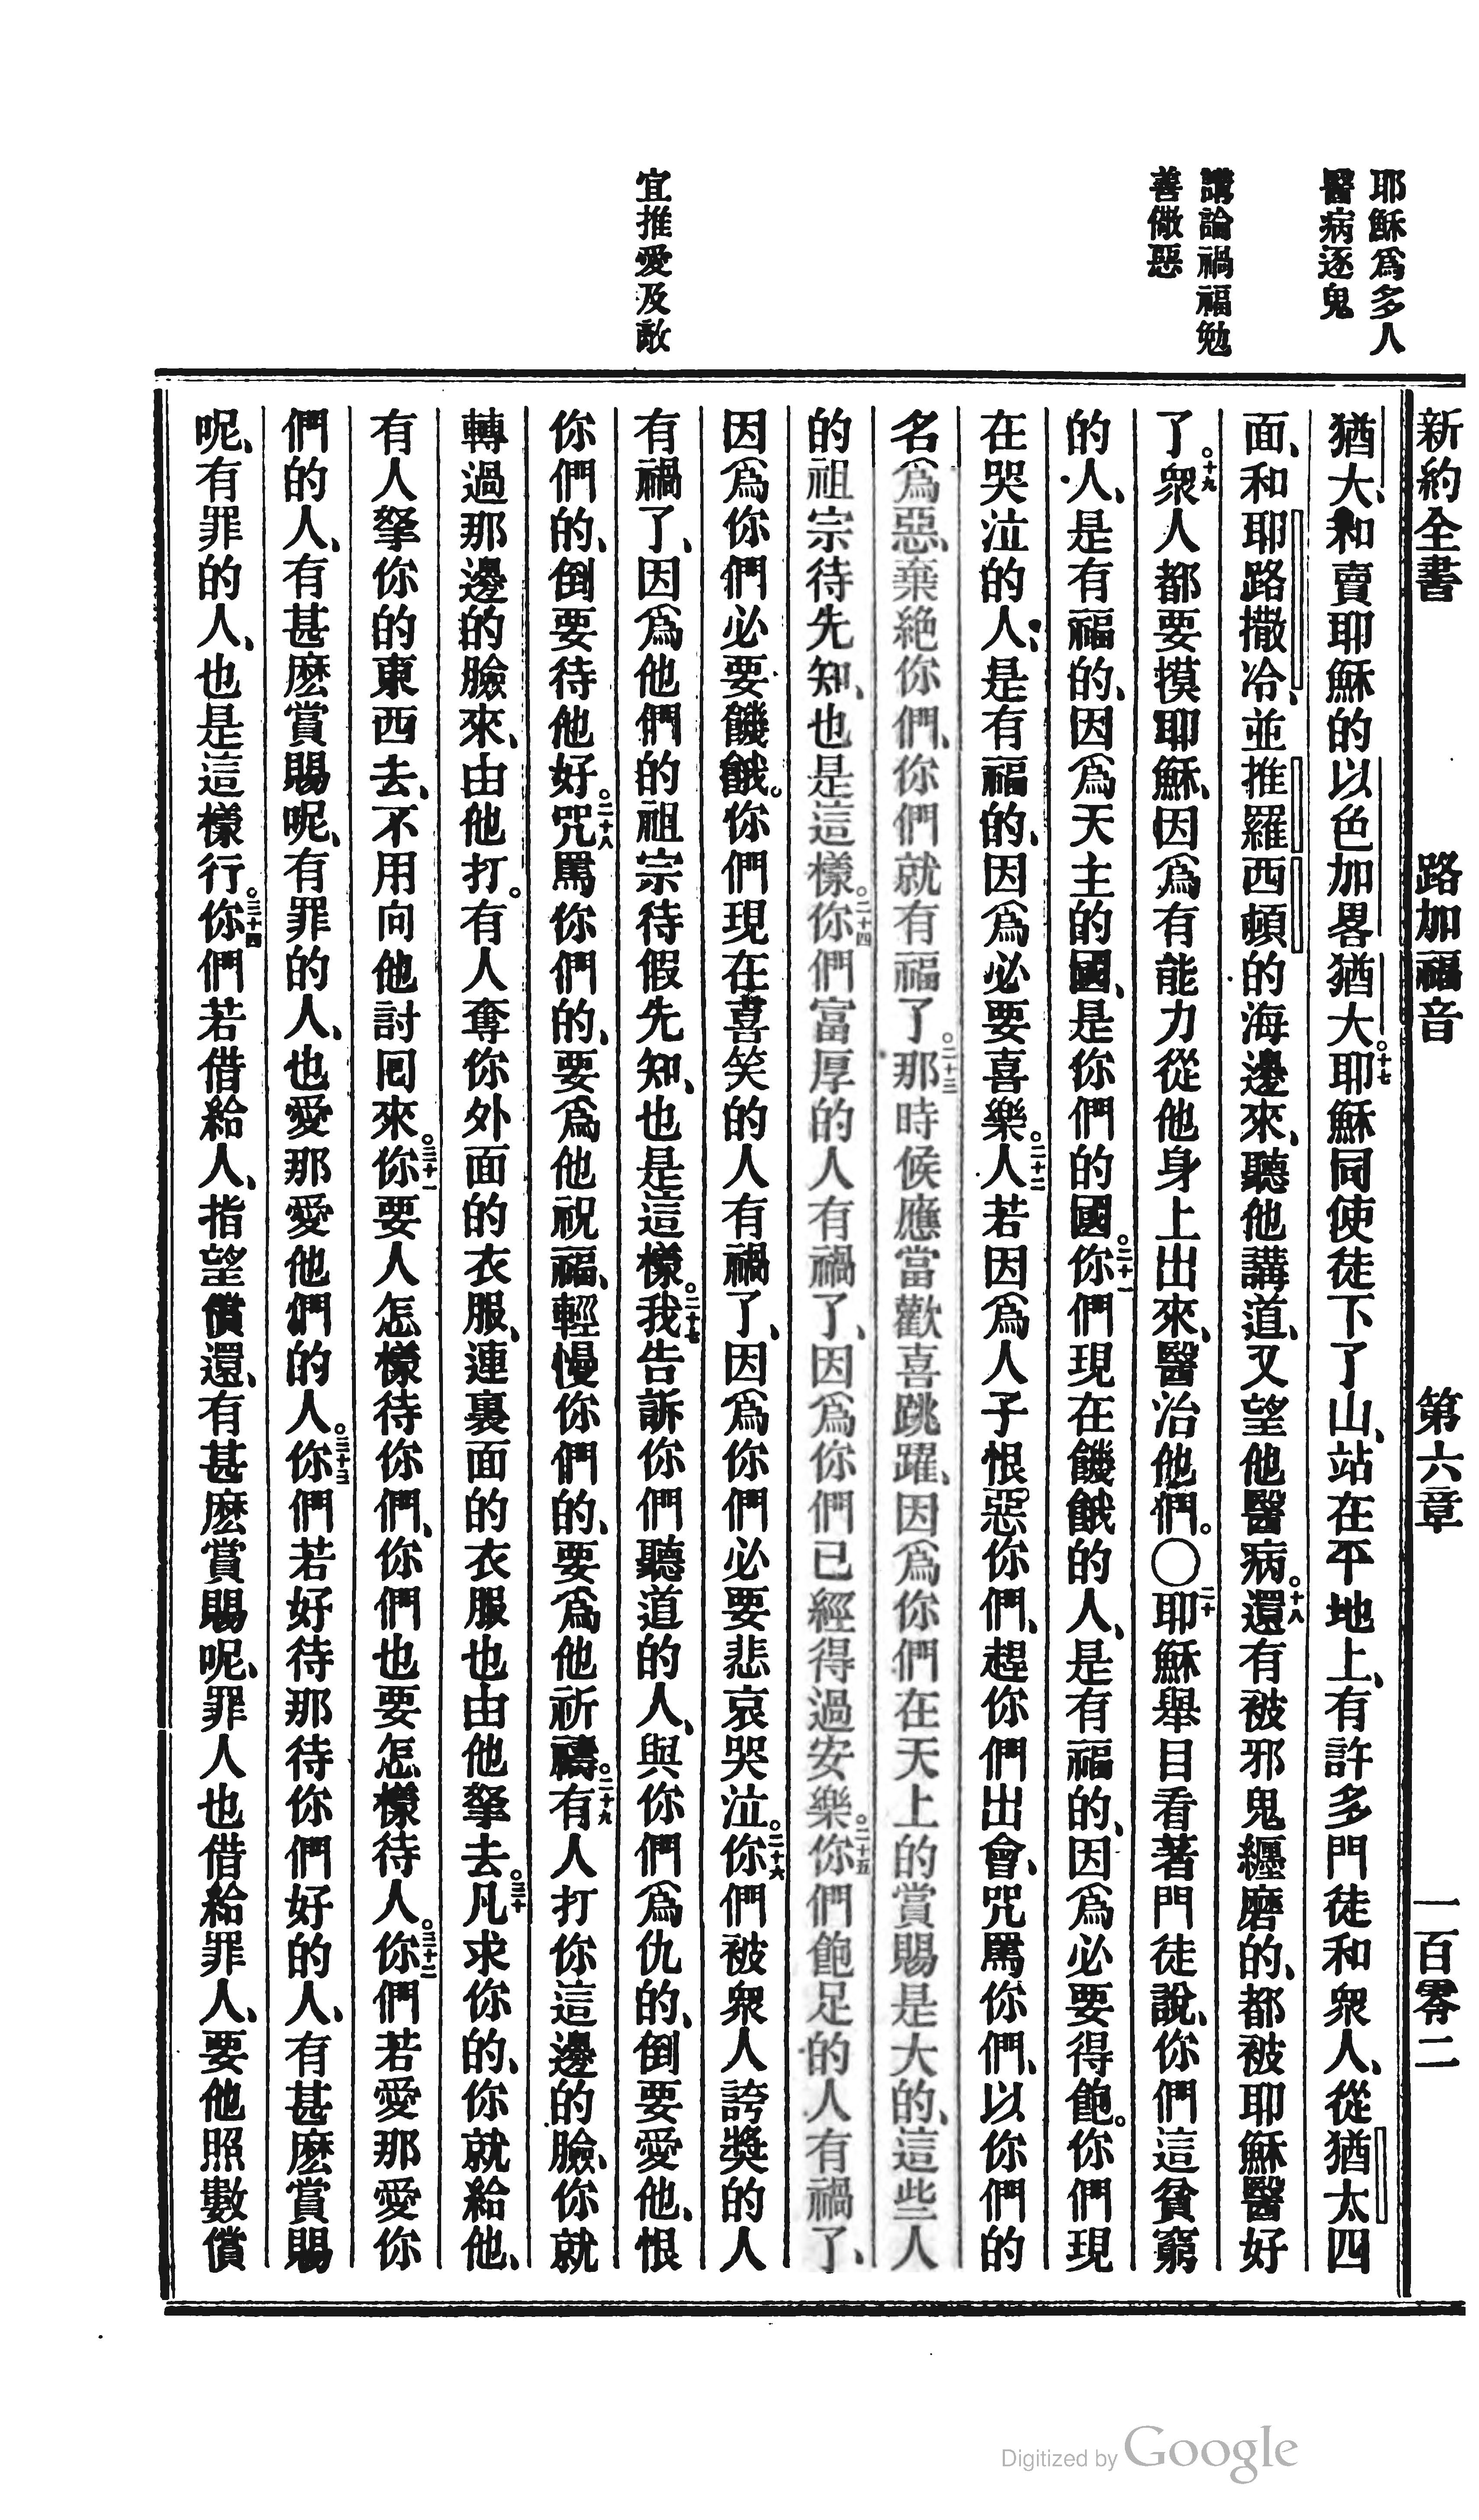 耶穌爲多人
醫病逐鬼
講論禍福勉
善儆惡
宜推愛及敵
新約全書 路加福音 第六章 一百零二
猶大、和賣耶穌的以色加畧猶大。十七耶穌同使徒下了山、站在平地上、有許多門徒和衆人、從猶太四
面、和耶路撒冷、並推羅西頓的海邊來、聽他講道、又望他醫病。十八還有被邪鬼纏磨的、都被耶穌醫好
了。十九衆人都要摸耶穌、因爲有能力從他身上出來、醫治他們。〇二十耶穌舉目看著門徒說、你們這貧窮
的人、是有福的、因爲天主的國、是你們的國。二十一你們現在饑餓的人、是有福的、因爲必要得飽。你們現
在哭泣的人、是有福的、因爲必要喜樂。二十二人若因爲人子恨惡你們、趕你們出會、咒罵你們、以你們的
名爲惡、棄絕你們、你們就有福了。二十三那時候應當歡喜跳躍、因爲你們在天上的賞賜是大的、這些人
的祖宗待先知、也是這樣。二十四你們富厚的人有禍了、因爲你們已經得過安樂。二十五你們飽足的人有禍了、
因爲你們必要饑餓。你們現在喜笑的人有禍了、因爲你們必要悲哀哭泣。二十六你們被衆人誇獎的人
有禍了、因爲他們的祖宗待假先知、也是這樣。二十七我告訴你們聽道的人、與你們爲仇的、倒要愛他、恨
你們的、倒要待他好。二十八咒罵你們的、要爲他祝福、輕慢你們的、要爲他祈禱。二十九有人打你這邊的臉、你就
轉過那邊的臉來、由他打。有人奪你外面的衣服、連裏面的衣服也由他拏去。三十凡求你的、你就給他、
有人拏你的東西去、不用向他討囘來。三十一你要人怎樣待你們、你們也要怎樣待人。三十二你們若愛那愛你
們的人、有甚麽賞賜呢、有罪的人、也愛那愛他們的人。三十三你們若好待那待你們好的人、有甚麽賞賜
呢、有罪的人、也是這樣行。三十四你們若借給人、指望償還、有甚麽賞賜呢、罪人也借給罪人、要他照數償
Digitized by Google